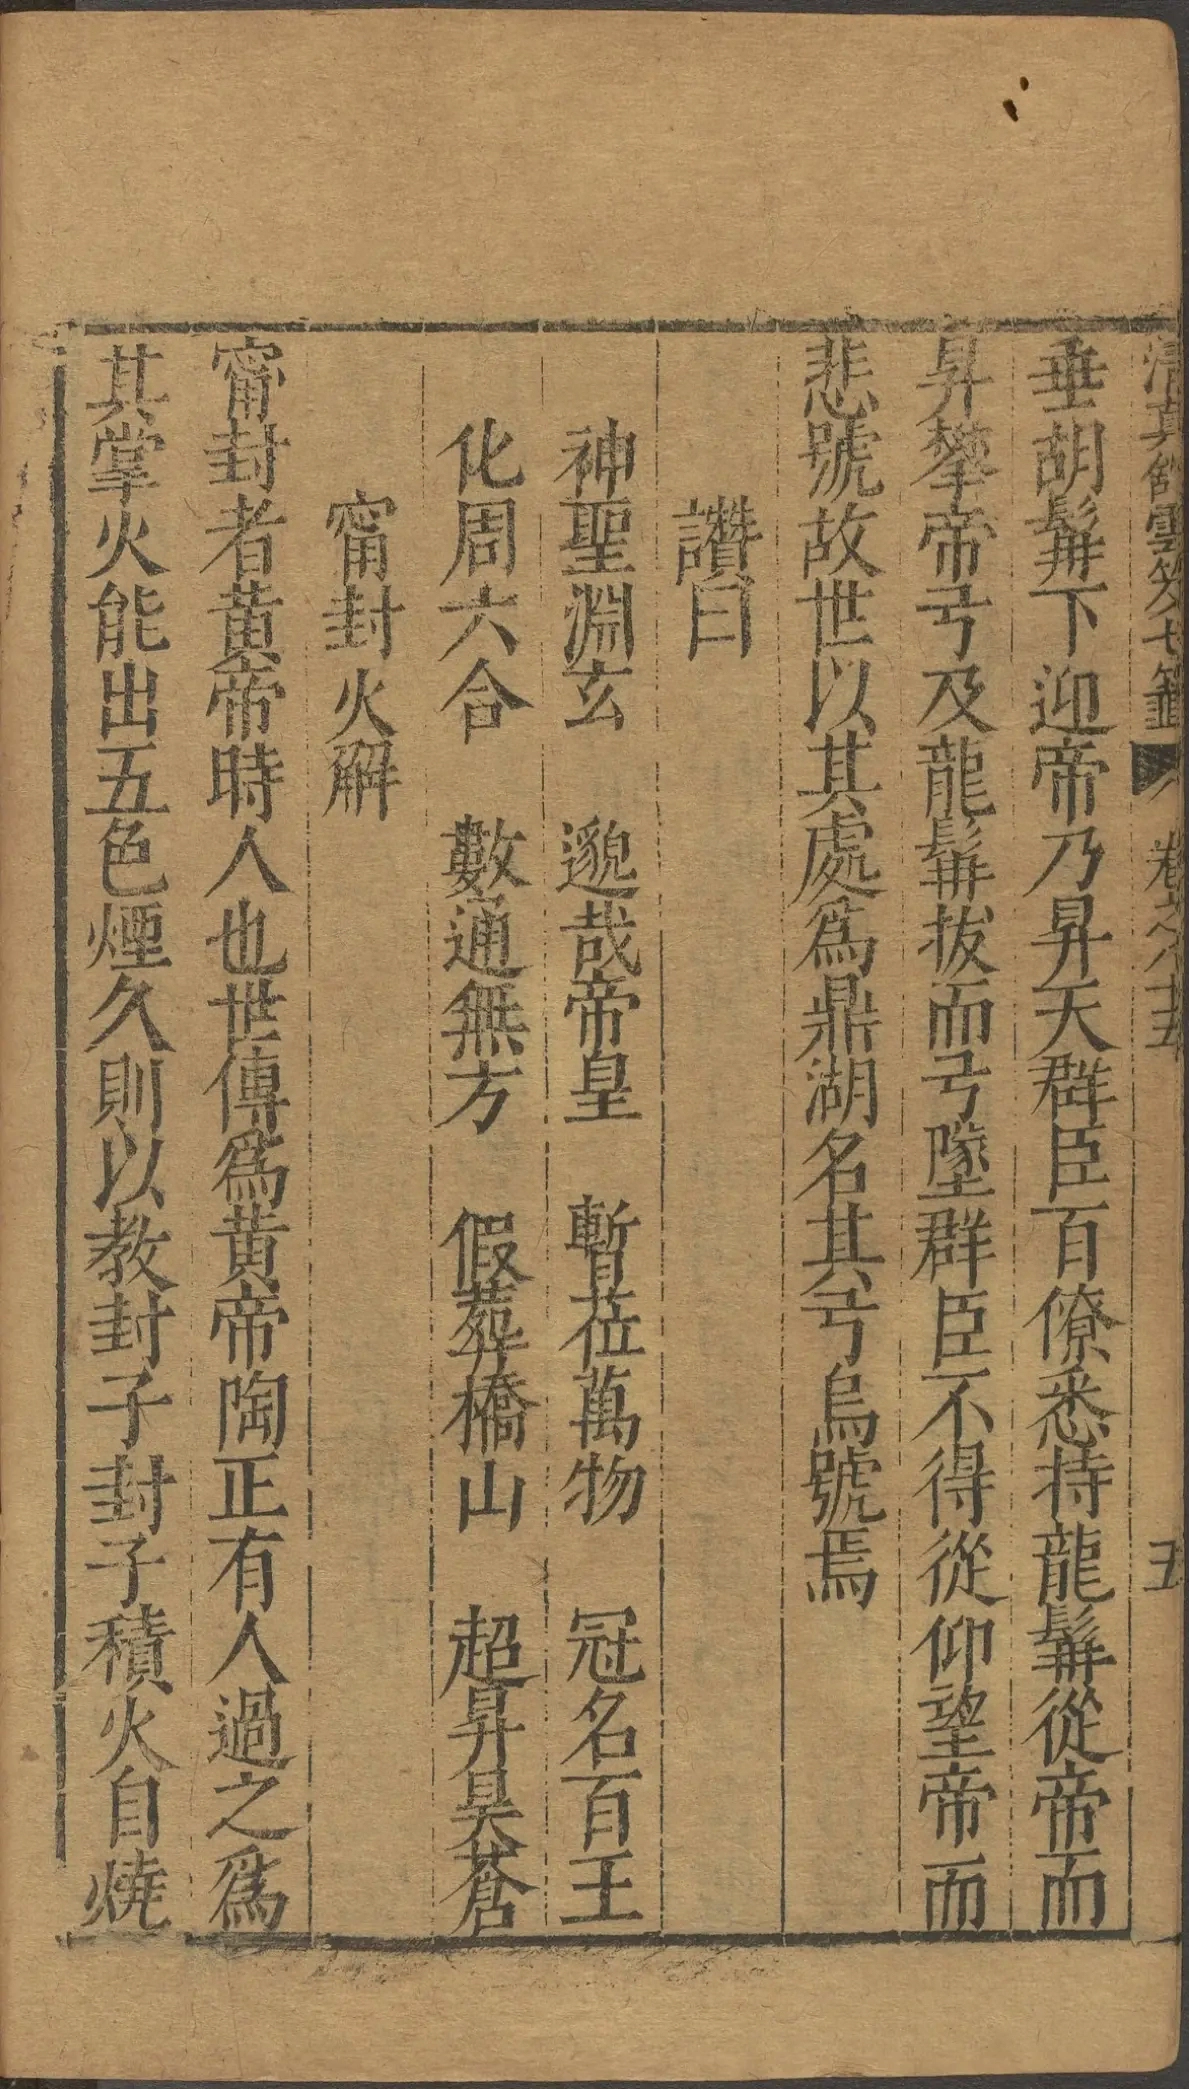 清真館雲笈七籤 卷之八十五 五
垂胡髯下迎帝乃昇天群臣百僚悉持龍髯從帝而
昇攀帝弓及龍髯拔而弓墜群臣不得從仰望帝而
悲號故世以其處爲鼎湖名其弓烏號焉
讚曰
神聖淵玄 邈哉帝皇 暫莅萬物 冠名百王
化周六合 數通無方 假葬橋山 超昇昊蒼
甯封火解
甯封者黃帝時人也世傳爲黃帝陶正有人過之爲
其掌火能出五色煙久則以教封子封子積火自燒